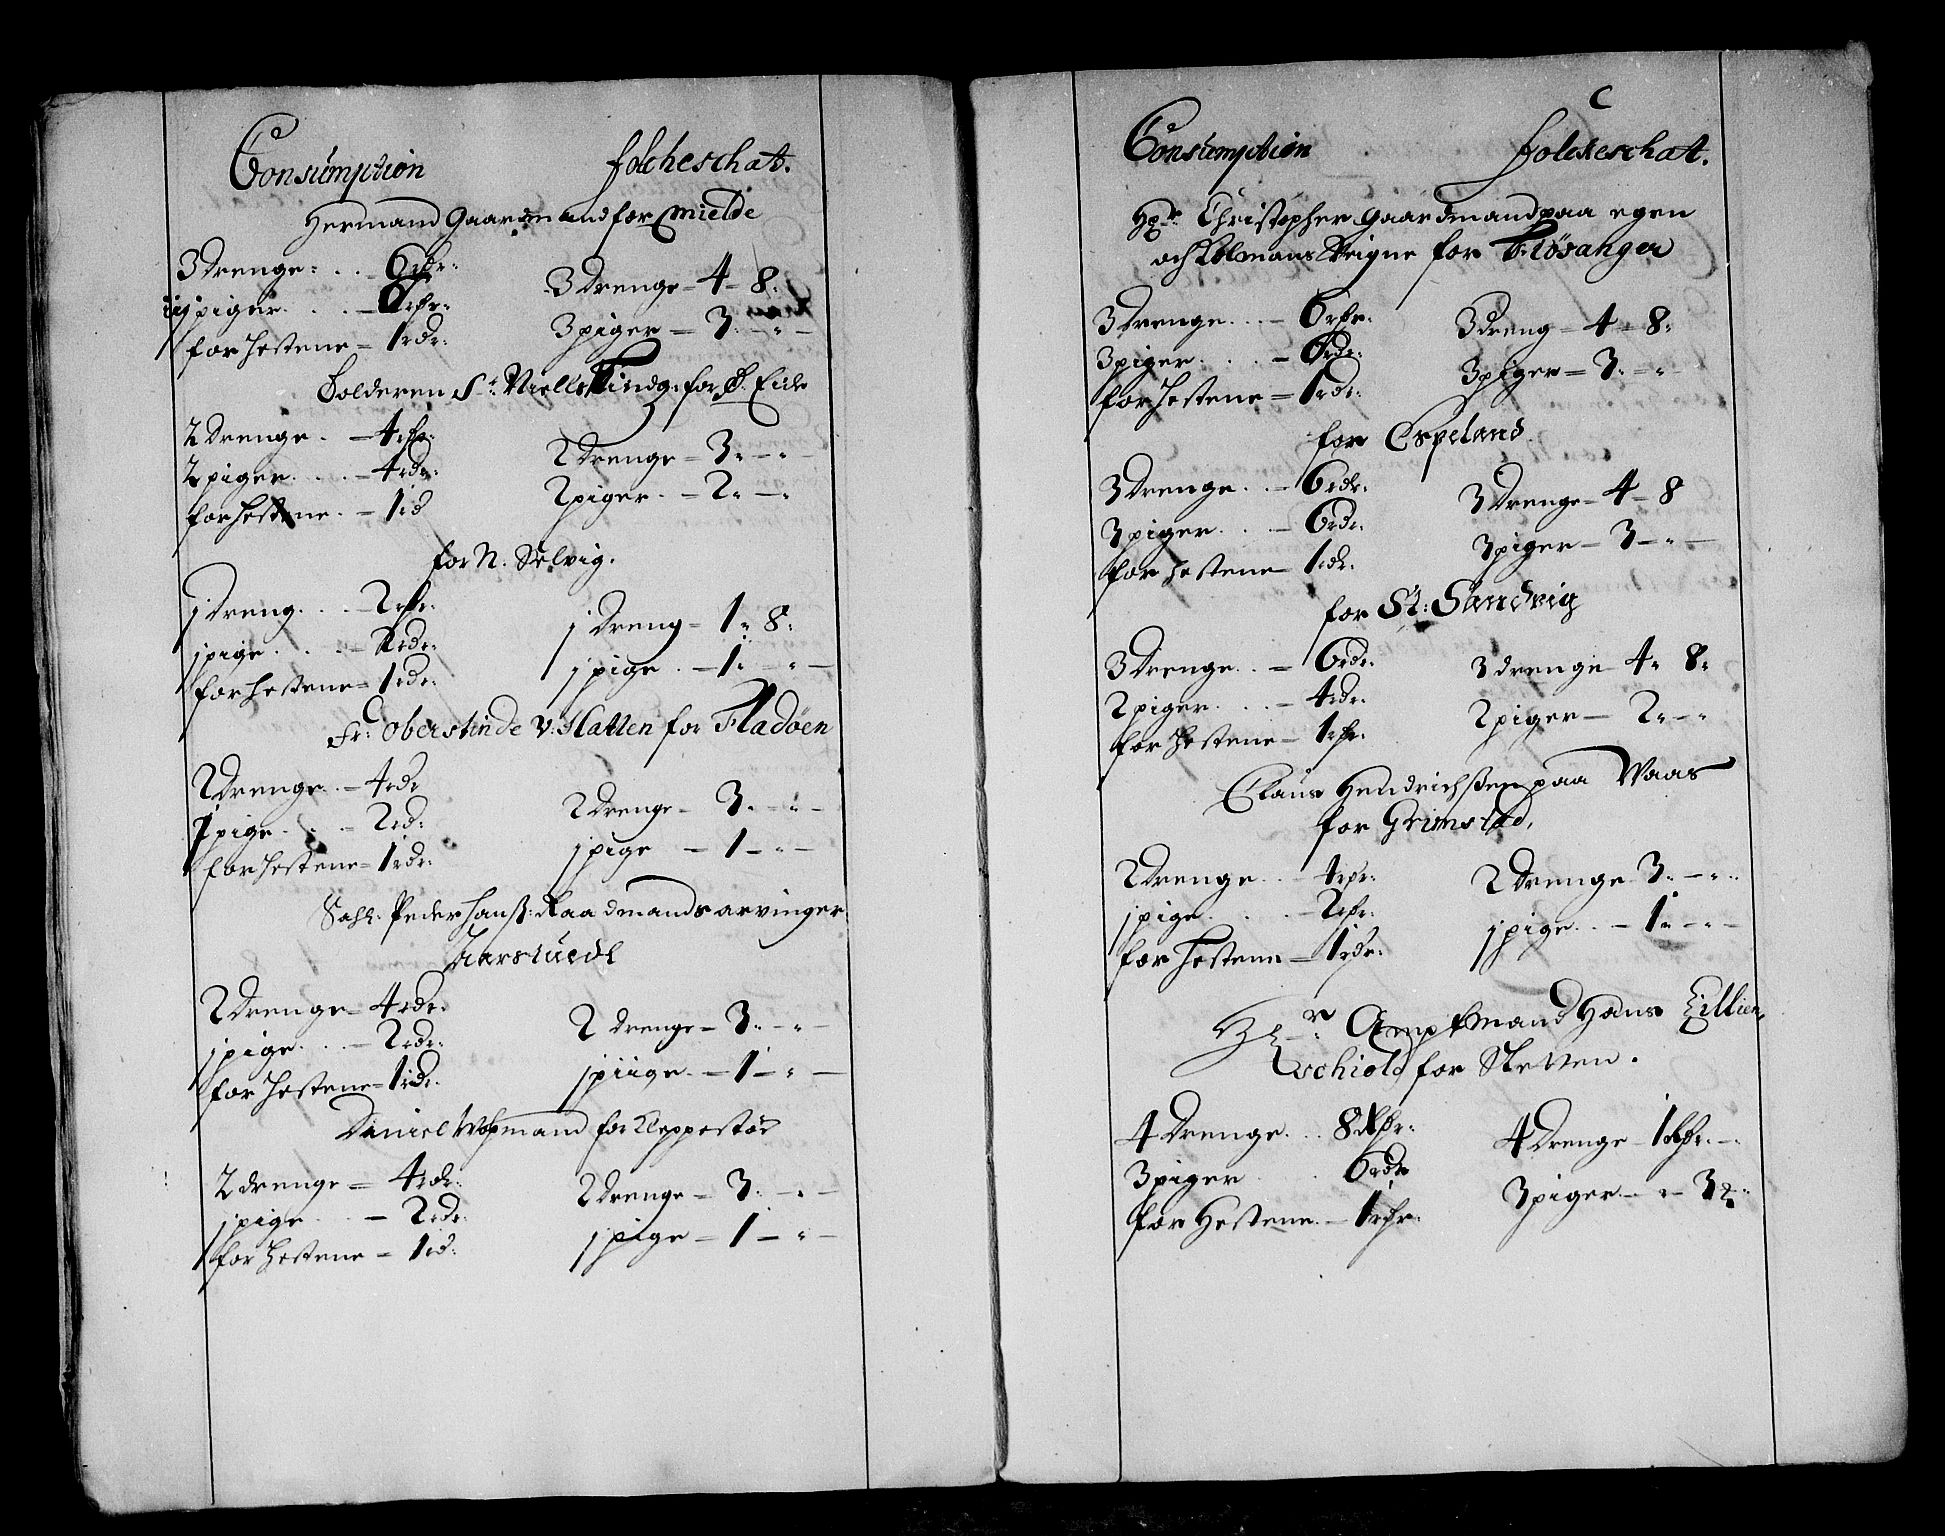 Consumption folcheschat.
Hermand Gaardmand for Mielde
3 drenge: . . 6 rdr: 3 drenge - 4 - 8.
iij piger . . . - 6 rdr: 3 piger - 3. - " -
for hestene - 1 rdr:
Tolderen Sr: Niells for Eide
2 drenge . - 4 rdr: 2 drenge - 3. - " -
2 piger . . . - 4 rdr: 2 piger . - 2. - "
for hestene . - 1 rd
for N. Selvig.
j dreng . . . - 2 rdr: j dreng - 1 " 8.
j pige . . . . - 2 rdr: j pige . . - 1. - " -
for hestene - 1 rdr.
Fr: Oberstinde V: Hatten for Fladöen
2 drenge . - 4 rdr 2 drenge - 3. - " -
1 pige . . . - 2 rd: j pige - 1 - " -
for hestene - 1 rdr:
Sahl: Peder Hanß: Raadmands arvinger
Aarstuedt
2 drenge - 4 rdr: 2 drenge - 3. - " -
j pige . . . - 2 rdr: j piige . - 1 - " -
for hestene - 1 rdr.
Daniel Wopmand for Kleppestöe
2 drenge - 4 rdr. 2 drenge - 3. - " -
j pige . . . - 2 rdr: j pige - 1 - " -
for hestene - 1 rd:
Consumption folckeschat.
Christopher Gaardmand paa egen
och Colmans Veigne for Flösanger
3 drenge . . . - 6 rdr. 3 dreng - 4 - 8.
3 piger . . . . - 6 rdr: 3 piger - 3. - " -
for hestene - 1 rdr.
for Espeland.
3 drenge . . - 6 rdr. 3 drenge - 4 - 8
3 piger . . . - 6 rdr: 3 piger - 3 - " -
for hestene - 1 rdr.
for St: Sandvig
3 drenge . . - 6 rdr. 3 drenge - 4. 8.
2 piger . . . . - 4 rdr. 2 piger - 2. - "
for hestene - 1 rdr.
Claus Hendrichßen paa Waas
for Grimstad,
2 drenge . . - 4 rdr. 2 drenge - 3. - " .
j pige . . . . - 2 rdr. j pige . . - 1. - " -
for hestene - 1 rdr.
Hr: Amptmand Hans Lillien,
schiold for Sletten.
4 drenge . . . 8 Rdr. 4 drenge - 1 Rdr. - .
3 piger . . 6 rdr 3 piger . - " - 3
for hestene . - 1 rdr.